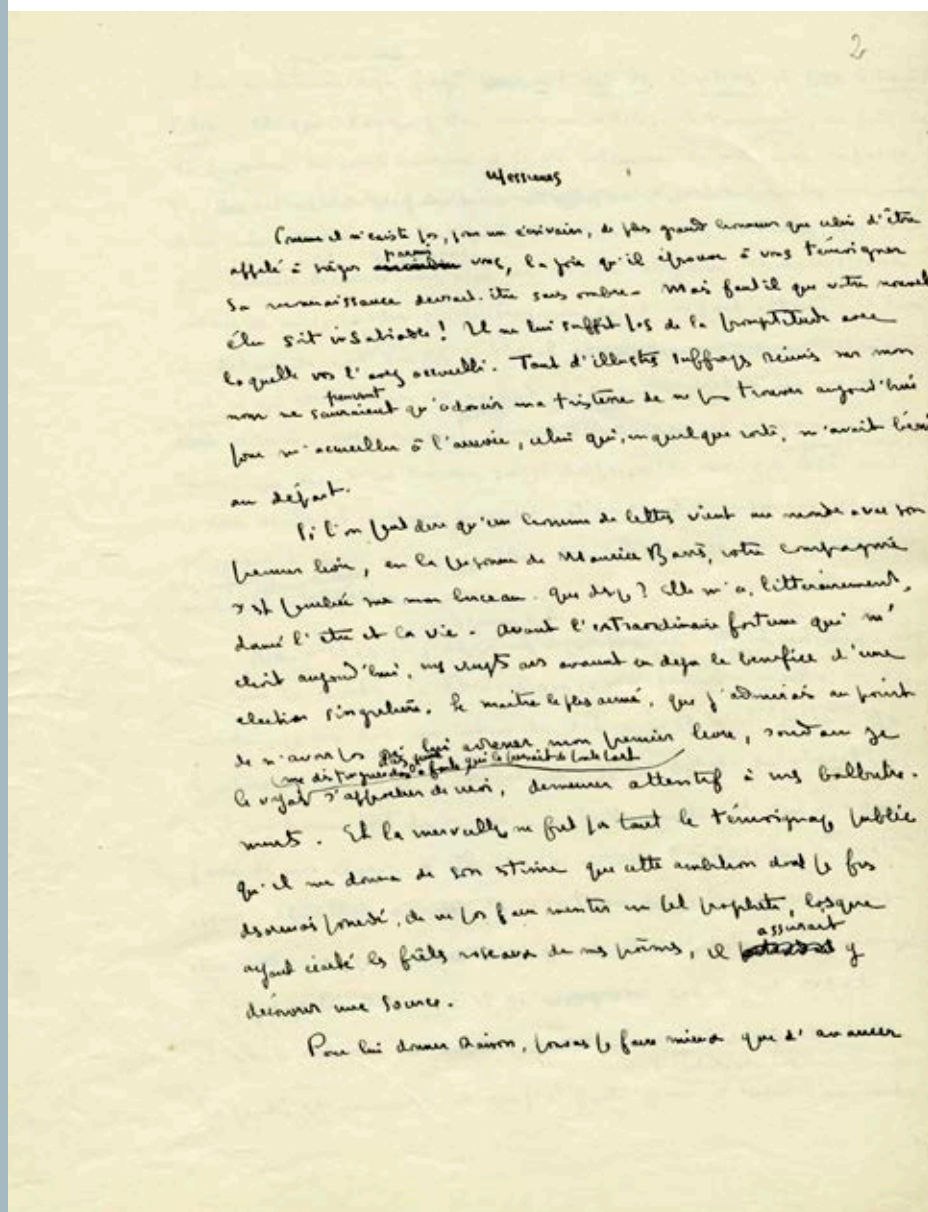 2
Messieurs
Comme il n'existe pas, pour un écrivain, de plus grand honneur que celui d'être
appelé à siéger parmi vous, la joie qu'il éprouve à vous témoigner
sa reconnaissance devrait être sans ombre. Mais faut-il que votre nouvel
élu soit insatiable! Il ne lui suffit pas de la promptitude avec
laquelle vous l'avez accueilli. Tant d'illustres suffrages réunis sur mon
nom ne sauraient peuvent qu'adoucir ma tristesse de ne pas trouver aujourd'hui
pour m'accueillir à l'arrivée, celui qui, en quelque sorte, m'avait béni
au départ.
Si l'on peut dire qu'un homme de lettres vient au monde avec son
premier livre, en la personne de Maurice Barrès, votre compagnie
s'est penchée sur mon berceau. Que dis-je? Elle m'a, littérairement,
donné l'être et la vie. Avant l'extraordinaire fortune qui m'
échoit aujourd'hui, mes vingt ans avaient eu déjà le bénéfice d'une
élection singulière. Le maître le plus aimé, que j'admirais au point
de n'avoir pas osé lui adresser mon premier livre, soudain je
le voyais s'approcher de moi, demeurer attentif à mes balbutie-
ments. Et la merveille ne fut pas tant le témoignage public
qu'il me donna de son estime que cette ambition dont je fus
désormais possédé, de ne pas faire mentir un tel prophète, lorsque
ayant écarté les frêles roseaux de mes poèmes, il assurait y
découvrir une source.
Pour lui donner raison, pouvais-je faire mieux que d'avancer